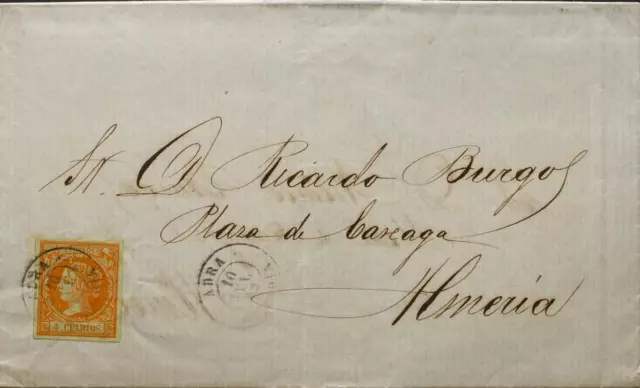 Sr. D. Ricardo Burgos
Plaza de Careaga
Almería
ADRA
10
ADRA
4 CUARTOS